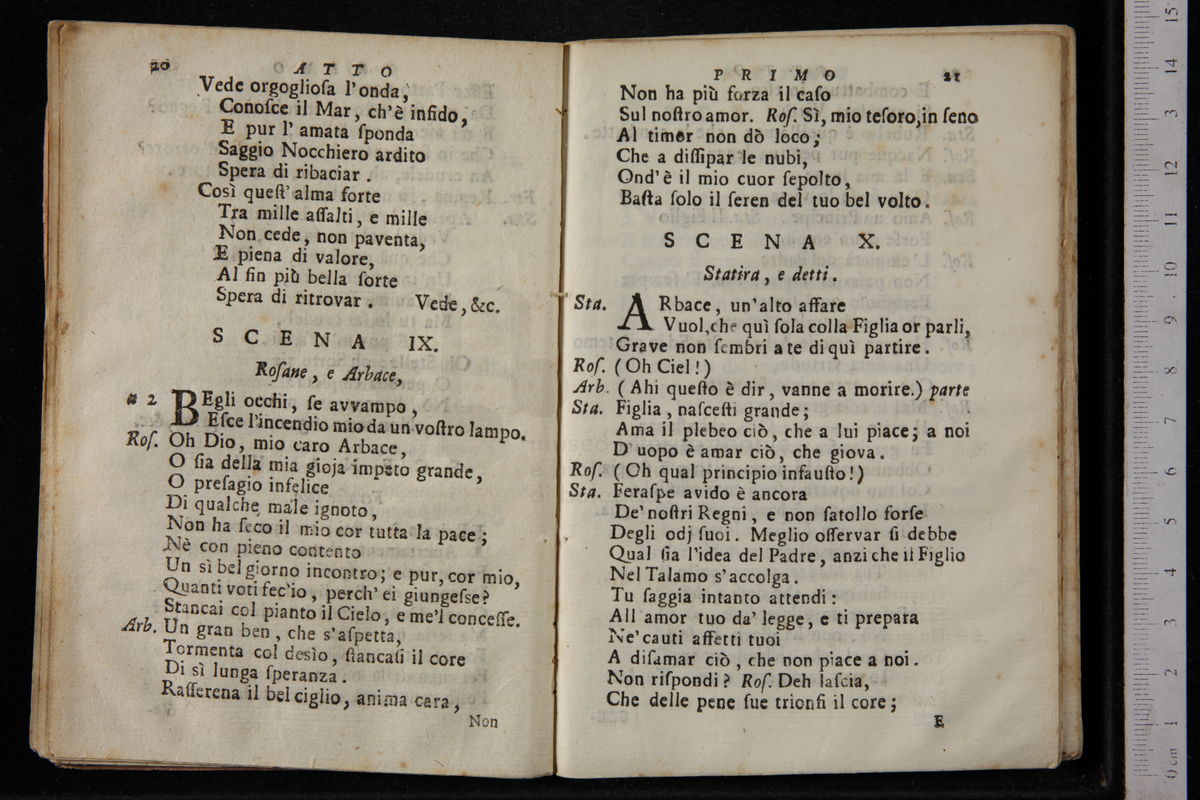 20 ATTO
Vede orgoglioſa l'onda,
Conoſce il Mar, ch'è infido,
E pur l'amata ſponda
Saggio Nocchiero ardito
Spera di ribaciar.
Così queſt'alma forte
Tra mille aſſalti, e mille
Non cede, non paventa,
E piena di valore,
Al fin più bella ſorte
Spera di ritrovar. Vede, &c.
SCENA IX.
Roſane, e Arbace,
a 2 BEgli occhi, ſe avvampo,
Eſce l'incendio mio da un voſtro lampo.
Roſ. Oh Dio, mio caro Arbace,
O ſia della mia gioja impeto grande,
O preſagio infelice
Di qualche male ignoto,
Non ha ſeco il mio cor tutta la pace;
Nè con pieno contento
Un sì bel giorno incontro; e pur, cor mio,
Quanti voti fec'io, perch'ei giungeſse?
Stancai col pianto il Cielo, e me'l conceſſe.
Arb. Un gran ben, che s'aſpetta,
Tormenta col desìo, ſtancaſi il core
Di sì lunga ſperanza.
Raſſerena il bel ciglio, anima cara,
Non
PRIMO 21
Non ha più forza il caſo
Sul noſtro amor. Roſ. Sì, mio teſoro, in ſeno
Al timor non dò loco;
Che a diſſipar le nubi,
Ond'è il mio cuor ſepolto,
Baſta ſolo il ſeren del tuo bel volto.
SCENA X.
Statira, e detti.
Sta. ARbace, un'alto affare
Vuol, che quì ſola colla Figlia or parli,
Grave non ſembri a te di quì partire.
Roſ. (Oh Ciel!)
Arb. (Ahi queſto è dir, vanne a morire.) parte
Sta. Figlia, naſceſti grande;
Ama il plebeo ciò, che a lui piace; a noi
D'uopo è amar ciò, che giova.
Roſ. (Oh qual principio infauſto!)
Sta. Feraſpe avido è ancora
De'noſtri Regni, e non ſatollo forſe
Degli odj ſuoi. Meglio oſſervar ſi debbe
Qual ſia l'idea del Padre, anzi che il Figlio
Nel Talamo s'accolga.
Tu ſaggia intanto attendi:
All'amor tuo da'legge, e ti prepara
Ne'cauti affetti tuoi
A diſamar ciò, che non piace a noi.
Non riſpondi? Roſ. Deh laſcia,
Che delle pene ſue trionfi il core;
E